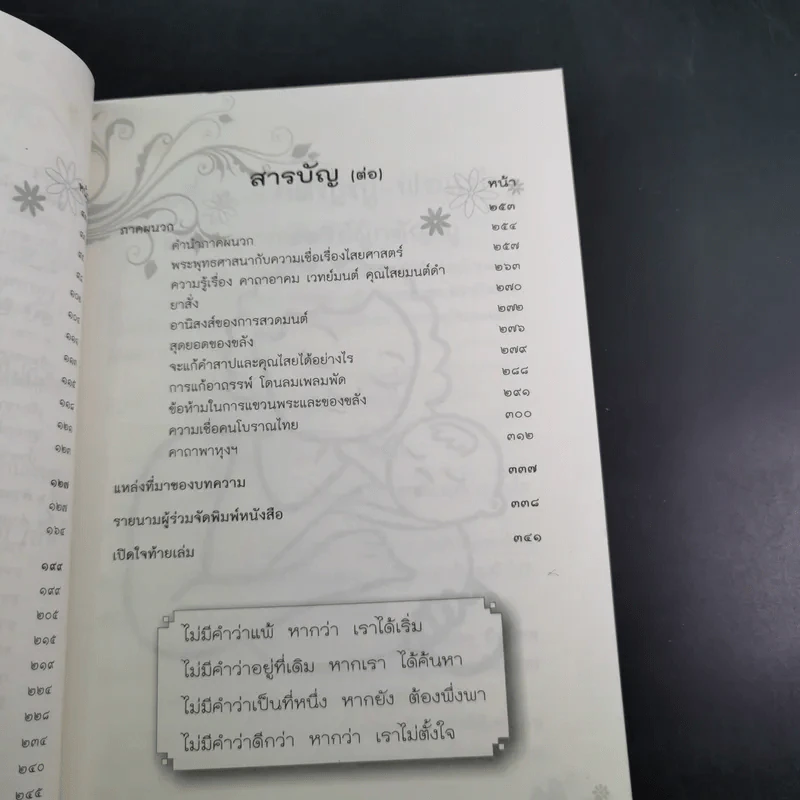 สารบัญ (ต่อ)
หน้า
ภาคผนวก ๒๕๓
คำนำภาคผนวก ๒๕๔
พระพุทธศาสนากับความเชื่อเรื่องไสยศาสตร์ ๒๕๗
ความรู้เรื่อง คาถาอาคม เวทย์มนต์ คุณไสยมนต์ดำ ๒๖๓
ยาสั่ง ๒๗๐
อานิสงส์ของการสวดมนต์ ๒๗๒
สุดยอดของขลัง ๒๗๖
จะแก้คำสาปและคุณไสยได้อย่างไร ๒๗๙
การแก้อาถรรพ์ โดนลมเพลมพัด ๒๘๘
ข้อห้ามในการแขวนพระและของขลัง ๒๙๑
ความเชื่อคนโบราณไทย ๓๐๐
คาถาพาหุงฯ ๓๑๒
แหล่งที่มาของบทความ ๓๓๗
รายนามผู้ร่วมจัดพิมพ์หนังสือ ๓๓๘
เปิดใจท้ายเล่ม ๓๔๑
ไม่มีคำว่าแพ้ หากว่า เราได้เริ่ม
ไม่มีคำว่าอยู่ที่เดิม หากเรา ได้ค้นหา
ไม่มีคำว่าเป็นที่หนึ่ง หากยัง ต้องพึ่งพา
ไม่มีคำว่าดีกว่า หากว่า เราไม่ตั้งใจ
๑๒๗
๑๖๔
๑๙๙
๑๙๙
๒๐๕
๒๑๕
๒๑๙
๒๒๔
๒๒๘
๒๓๔
๒๔๐
๒๔๕